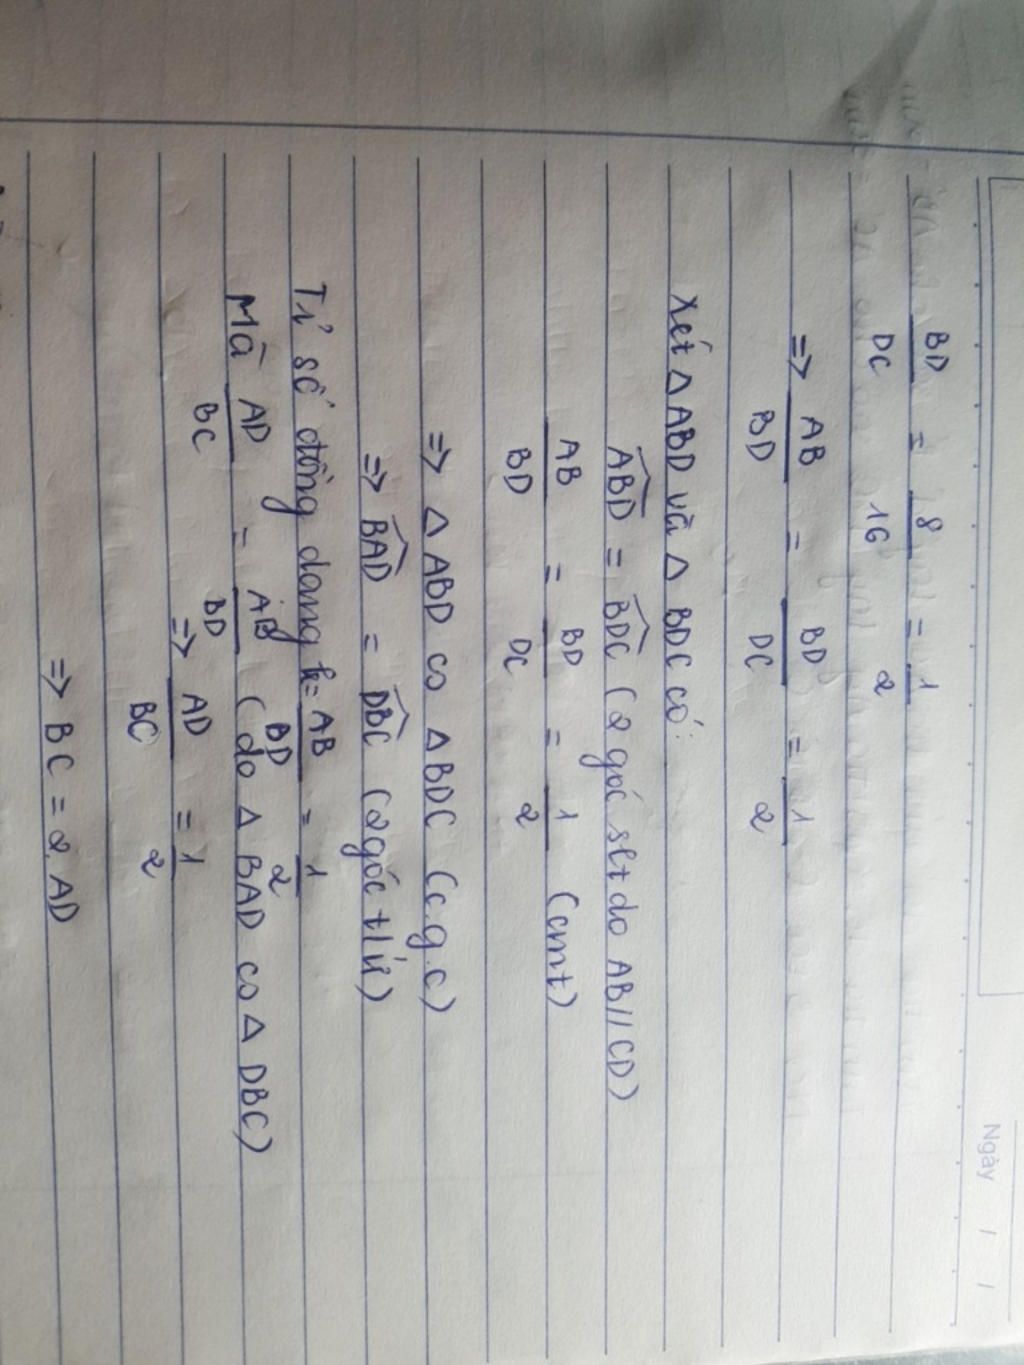 Ngày / /
BD/DC = 8/16 = 1/2
=> AB/BD = BD/DC = 1/2
Xét Δ ABD và Δ BDC có:
ABD = BDC (2 góc slt do AB // CD)
AB/BD = BD/DC = 1/2 (cmt)
=> Δ ABD ∽ Δ BDC (c.g.c)
=> BAD = DBC (2 góc t/ứ)
Tỉ số đồng dạng k = AB/BD = 1/2
Mà AD/BC = AB/BD (do Δ BAD ∽ Δ DBC)
=> AD/BC = 1/2
=> BC = 2.AD